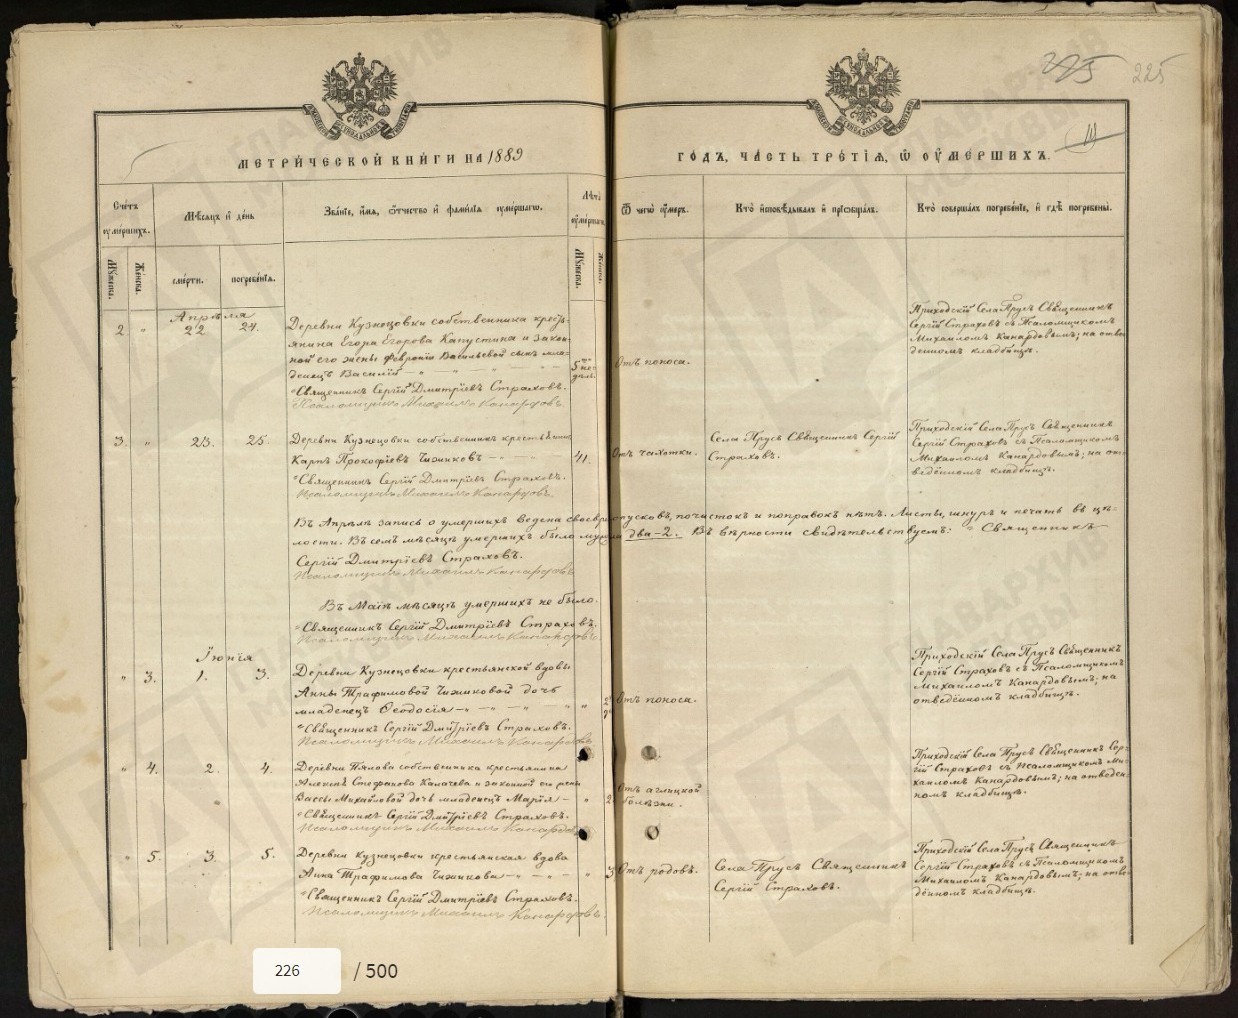 225 225
10
МЕТРИЧЕСКОЙ КНИГИ НА 1889
ГОДЪ, ЧАСТЬ ТРЕТІЯ, Ѿ ОУМЕРШИХЪ.
Счетъ оумершихъ.
Мѣсяцъ и день
Званіе, имя, отчество и фамилія оумершагѡ.
Лѣта оумершагѡ
Ѿ чегѡ оумеръ.
Кто исповѣдывалъ и пріобщалъ.
Кто совершалъ погребеніе, и гдѣ погребены.
Мужеска.
Женска.
смерти.
погребенія.
Мужеска.
Женска.
Апрѣля
2 " 22 24.
Деревни Кузнецовки собственника кресть-
янина Егора Егорова Капустина и закон-
ной его жены Февроніи Васильевой сынъ мла-
денецъ Василій
Священникъ Сергій Дмитріевъ Страховъ.
Псаломщикъ Михаилъ Канардовъ.
5 не-
дѣль.
Отъ поноса.
Приходскій Села Прусъ Священникъ
Сергій Страховъ съ Псаломщикомъ
Михаиломъ Канардовымъ; на отве-
денномъ кладбищѣ.
3. " 23. 25.
Деревни Кузнецовки собственникъ крестьянинъ
Карпъ Прокофіевъ Чижиковъ
Священникъ Сергій Дмитріевъ Страховъ.
Псаломщикъ Михаилъ Канардовъ.
41.
Отъ чахотки.
Села Прусъ Священникъ Сергій
Страховъ.
Приходскій Села Прусъ Священникъ
Сергій Страховъ съ Псаломщикомъ
Михаиломъ Канардовымъ; на от-
веденномъ кладбищѣ.
Въ Апрѣлѣ запись о умершихъ ведена своевре пусковъ, почистокъ и поправокъ нѣтъ. Листы, шнуръ и печать въ цѣ-
лости. Въ семъ мѣсяцѣ умершихъ было два-2. Въ вѣрности свидѣтельствуемъ: Священникъ
Сергій Дмитріевъ Страховъ.
Псаломщикъ Михаилъ Канардовъ
Въ Маѣ мѣсяцѣ умершихъ не было.
Священникъ Сергій Дмитріевъ Страховъ.
Псаломщикъ Михаилъ Канардовъ.
Іюнія
" 3. 1. 3.
Деревни Кузнецовки крестьянской вдовы
Анны Трафимовой Чижиковой дочь
младенецъ Ѳеодосія
Священникъ Сергій Дмитріевъ Страховъ.
Псаломщикъ Михаилъ Канардовъ
Отъ поноса.
Приходскій Села Прусъ Священникъ
Сергій Страховъ съ Псаломщикомъ
Михаиломъ Канардовымъ; на
отведенномъ кладбищѣ.
" 4. 2. 4.
Деревни Пялова собственника крестьянина
Алексѣя Стефанова Калачева и законной его жены
Вассы Михайловой дочь младенецъ Марія
Священникъ Сергій Дмитріевъ Страховъ.
Псаломщикъ Михаилъ Канардовъ
" 2
Отъ аглицкой
болѣзни.
Приходскій Села Прусъ Священникъ Сер-
гій Страховъ съ Псаломщикомъ Ми-
хаиломъ Канардовымъ; на отведен-
номъ кладбищѣ.
" 5. 3. 5.
Деревни Кузнецовки крестьянская вдова
Анна Трафимова Чижикова
Священникъ Сергій Дмитріевъ Страховъ.
Псаломщикъ Михаилъ Канардовъ.
" 3
Отъ родовъ.
Села Прусъ Священникъ
Сергій Страховъ.
Приходскій Села Прусъ Священникъ
Сергій Страховъ съ Псаломщикомъ
Михаиломъ Канардовымъ; на отве-
денномъ кладбищѣ.
226 / 500